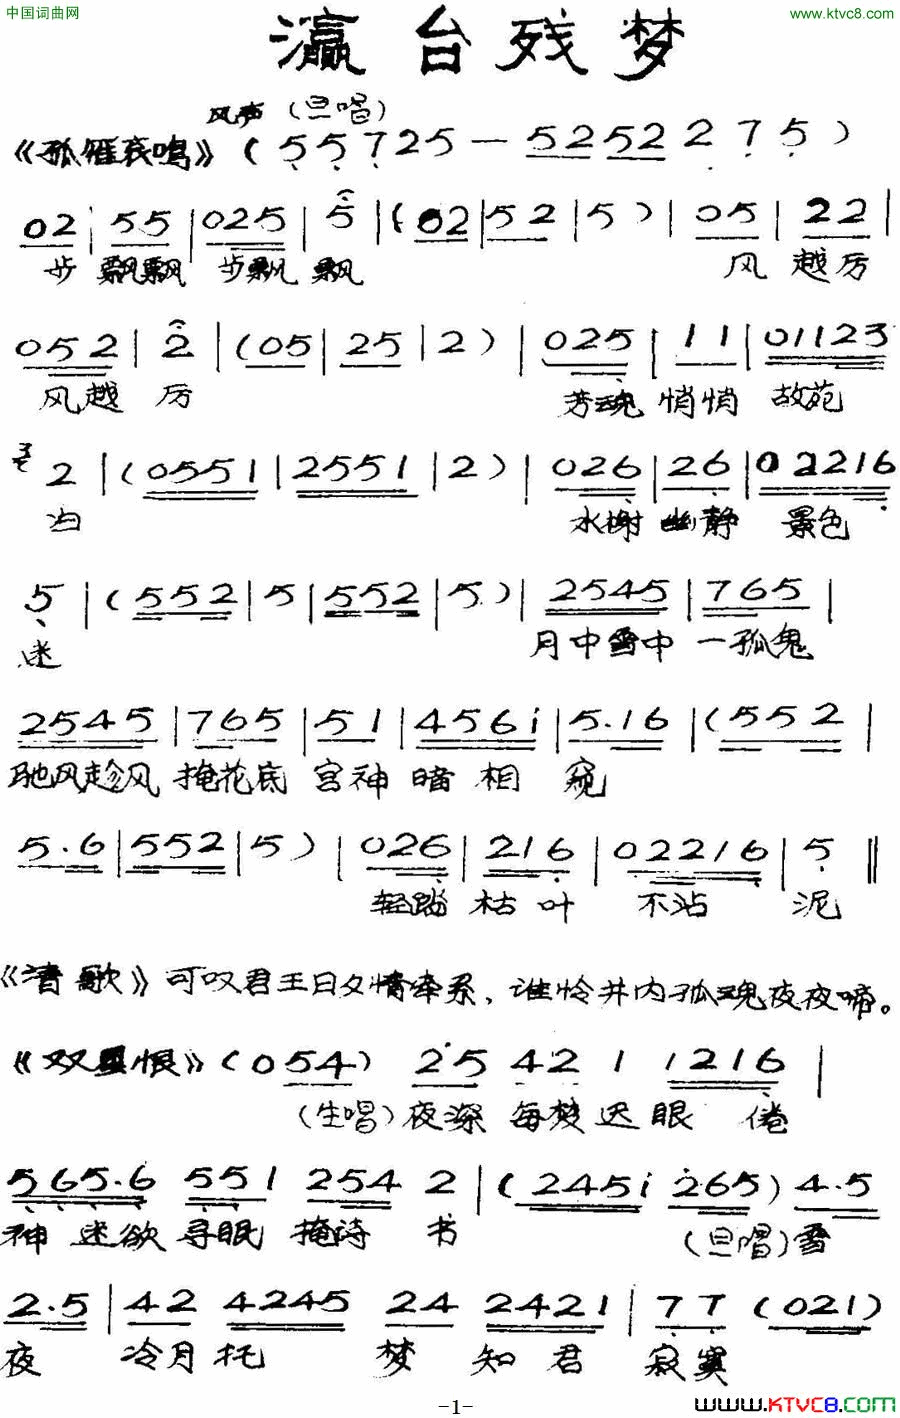 中国词曲网 www.ktvc8.com
瀛台残梦
风声 (旦唱)
《孤雁哀鸣》 ( 5 5 7 2 5 — 5 2 5 2 2 7 5 )
0 2 | 5 5 | 0 2 5 | 5 | ( 0 2 | 5 2 | 5 ) | 0 5 | 2 2 |
步 飘飘 步飘 飘 风 越厉
0 5 2 | 2 | ( 0 5 | 2 5 | 2 ) | 0 2 5 | 1 1 | 0 1 1 2 3
风越 厉 芳魂 悄悄 故苑
2 | ( 0 5 5 1 | 2 5 5 1 | 2 ) | 0 2 6 | 2 6 | 0 2 2 1 6
归 水榭 幽静 景色
5 | ( 5 5 2 | 5 | 5 5 2 | 5 ) | 2 5 4 5 | 7 6 5 |
迷 月中雪中 一孤鬼
2 5 4 5 | 7 6 5 | 5 1 | 4 5 6 i | 5 . 1 6 | ( 5 5 2 |
驰风趁风 掩花底 宫神 暗 相 窥
5 . 6 | 5 5 2 | 5 ) | 0 2 6 | 2 1 6 | 0 2 2 1 6 | 5 ‖
轻踏 枯 叶 不沾 泥
《清歌》可叹君王日夕情牵系、谁怜井内孤魂夜夜啼。
《双星恨》 ( 0 5 4 ) 2 5 4 2 1 1 2 1 6 |
(生唱)夜深 每梦 迟 眼 倦
5 6 5 . 6 5 5 1 2 5 4 2 | ( 2 4 5 i 2 6 5 ) 4 . 5
神 迷欲 寻眠 掩诗 书 (旦唱)雪
2 . 5 | 4 2 4 2 4 5 2 4 2 4 2 1 | 7 7 ( 0 2 1 )
夜 冷月 托 梦 知 君 寂寞
-1- www.KTVC8.COM